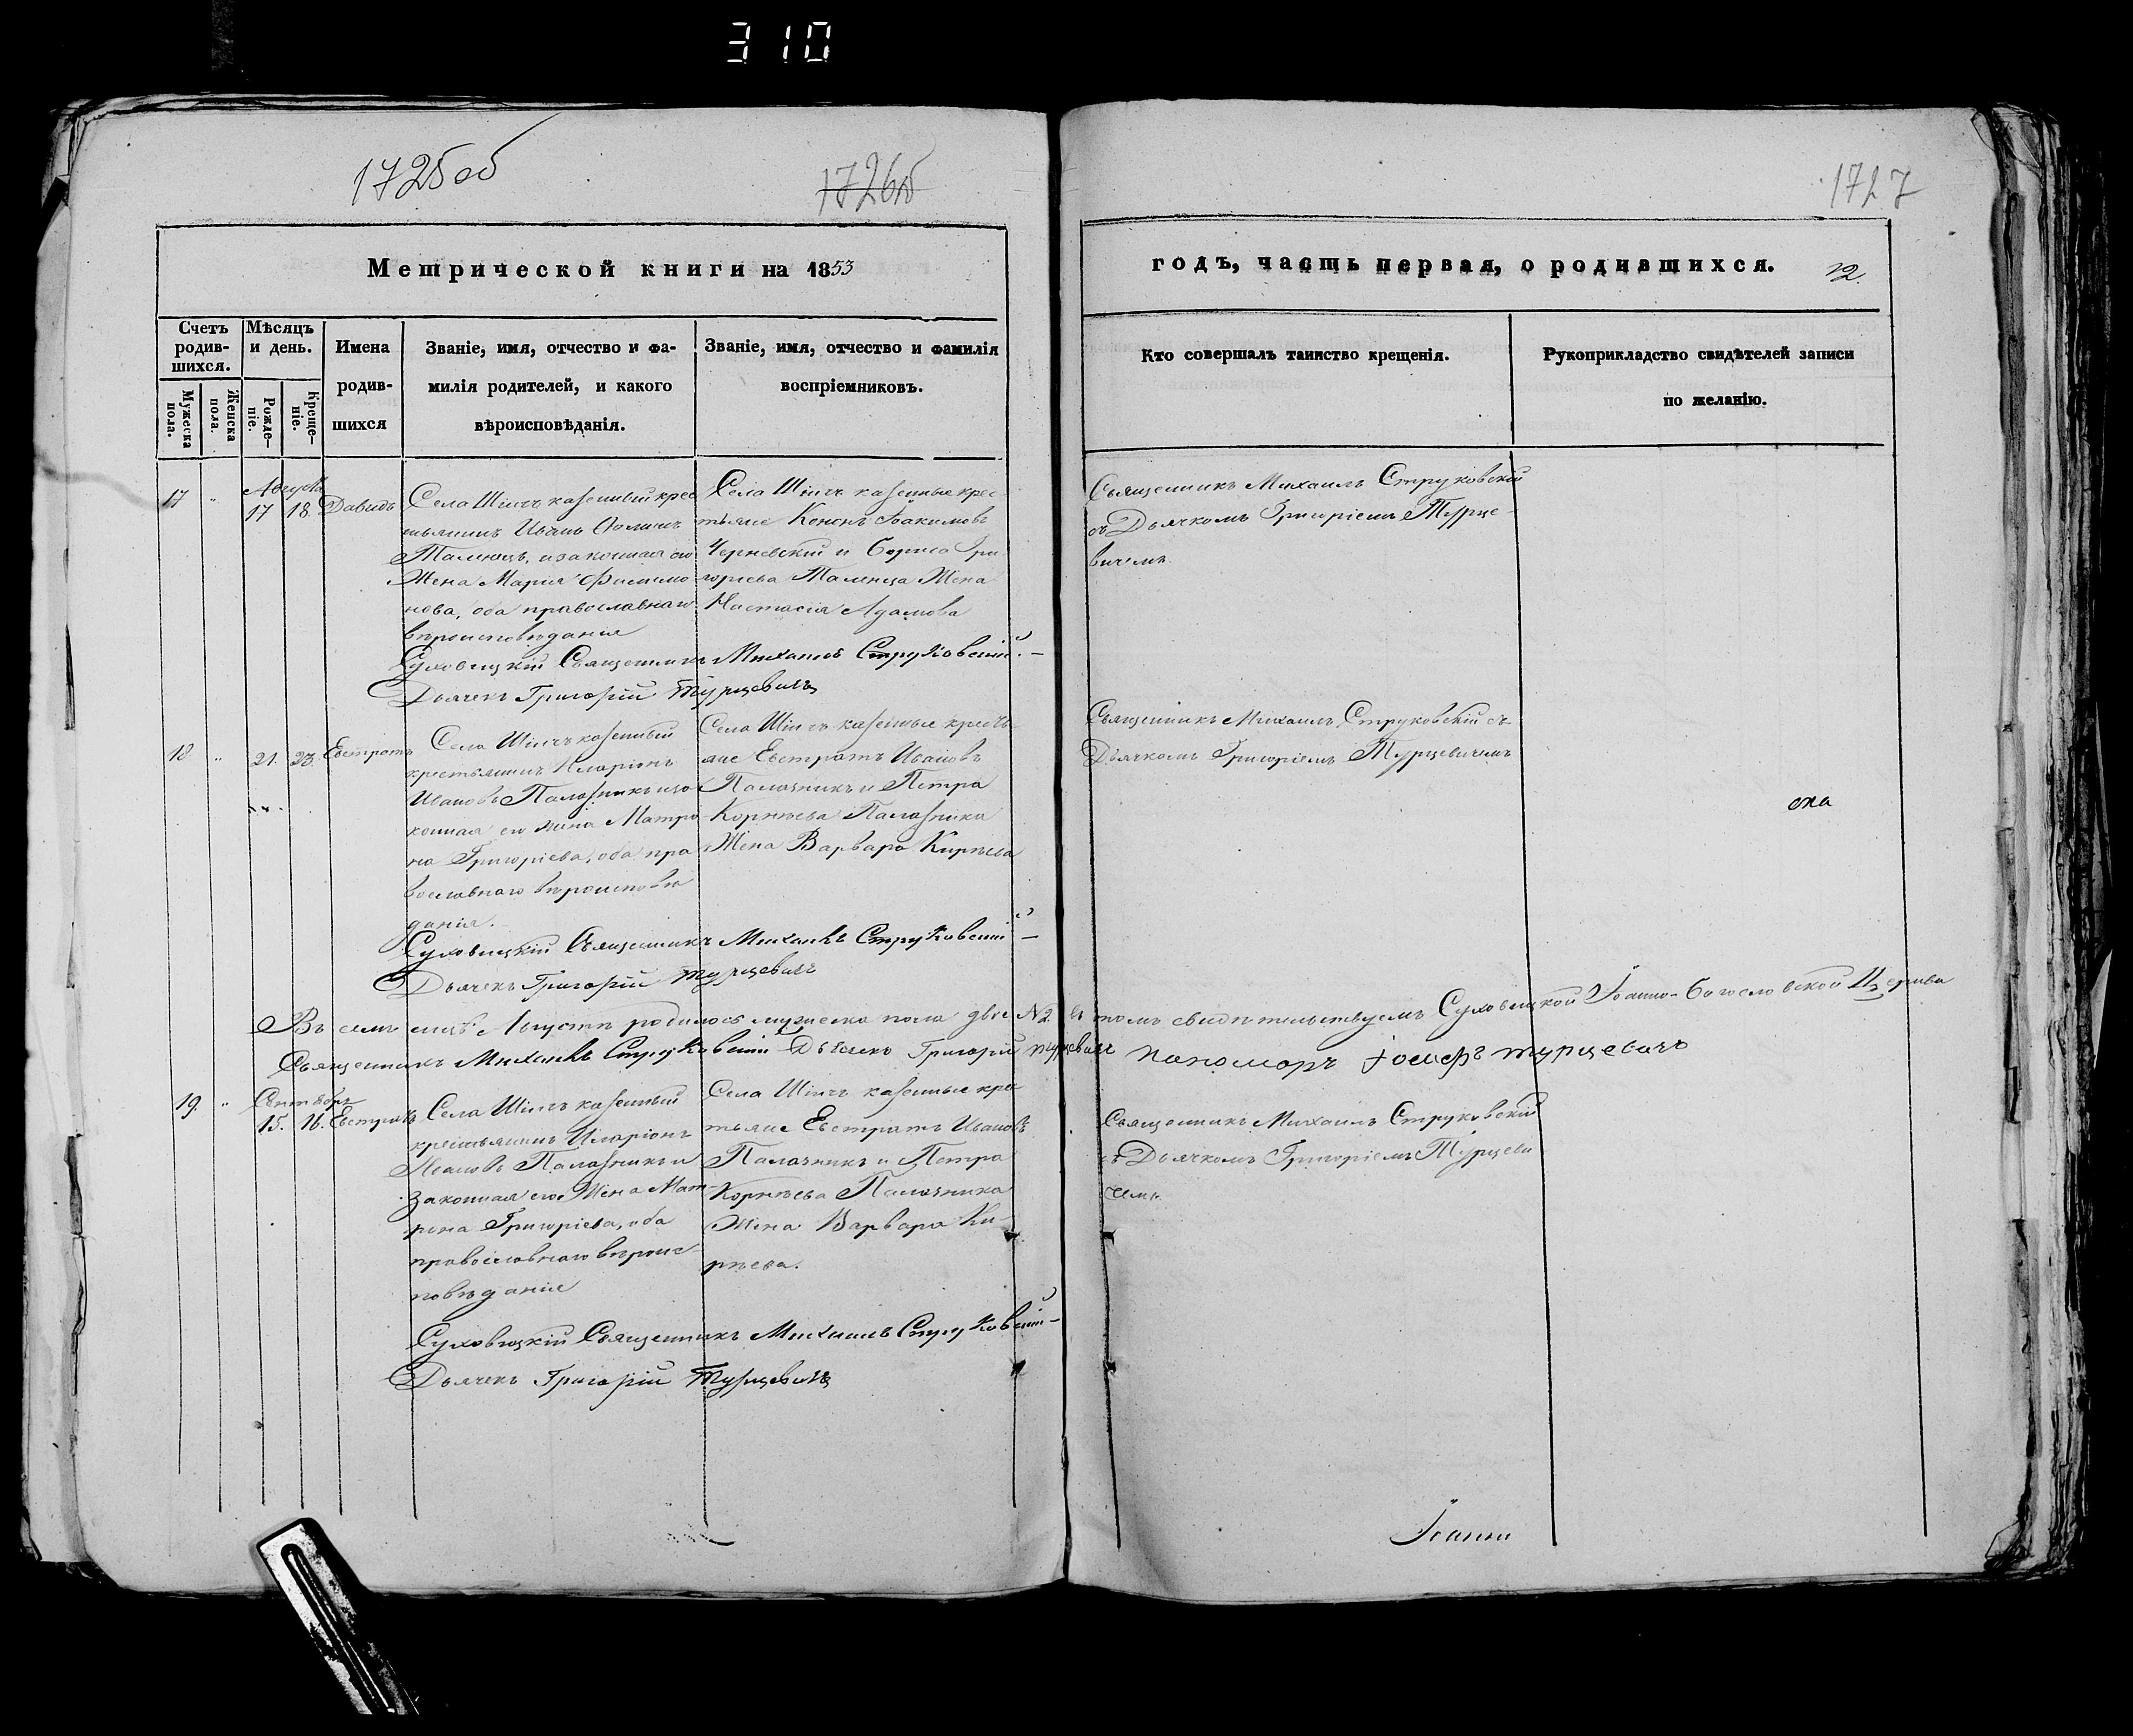 310
1725об
1726об
1727
Метрической книги на 1853
годъ, часть первая, о родившихся. 12.
Счетъ родив-шихся.
Мѣсяцъ и день.
Имена родив-шихся
Званіе, имя, отчество и фа-
милія родителей, и какого
вѣроисповѣданія.
Званіе, имя, отчество и фамилія
воспріемниковъ.
Кто совершалъ таинство крещенія.
Рукоприкладство свидѣтелей записи
по желанію.
Мужеска пола.
Женска пола.
Рожде-ніе.
Креще-ніе.
17 „ Августа 17 18 Давидъ
Села казенный крес
тьянинъ Иванъ
Таленецъ, и законная его
Жена Марія Филимо
нова, оба православнаго
вѣроисповѣданія
Села казенные крес
тьяне Кононъ Іоакимовъ
Черневскій и Бориса Гри
горьева Таленца Жена
Настасія Адамова
Священникъ Михаилъ Струковскій
съ Дьячкомъ Григоріемъ Турце-
вичемъ.
Суховицкій Священникъ Михаилъ Струковскій. —
Дьячекъ Григорій Турцевичъ
18 „ 21. 23. Евстратъ
Села казенный
крестьянинъ Иларіонъ
Ивановъ Палазникъ и за
конная его жена Матро
на Григоріева, оба пра
вославнаго вѣроисповѣ
данія.
Села казенные кресть
яне Евстратъ Ивановъ
Палазникъ и Петра
Корнѣева Палазника
Жена Варвара Кирѣева
Священникъ Михаилъ Струковскій съ
Дьячкомъ Григоріемъ Турцевичемъ
ока
Суховицкій Священникъ Михаилъ Струковскій —
Дьячекъ Григорій Турцевичъ
Въ семъ мцѣ Августѣ родилось мужеска пола двое №2. въ томъ свидѣтельствуемъ Суховицкой Іоанно-Богословской Церкви
Священникъ Михаилъ Струковскій Дьячекъ Григорій Турцевичъ пономарь Іосифъ Турцевичъ
19. „ Сентября 15. 16. Евстратъ
Села казенный
крестьянинъ Иларіонъ
Ивановъ Палазникъ и
законная его Жена Мат-
рона Григоріева, оба
православнаго вѣроис-
повѣданія
Села казенные крес
тьяне Евстратъ Ивановъ
Палазникъ и Петра
Корнѣева Палазника
Жена Варвара Ки-
рѣева.
Священникъ Михаилъ Струковскій
съ Дьячкомъ Григоріемъ Турцеви
чемъ.
Суховицкій Священникъ Михаилъ Струковскій —
Дьячекъ Григорій Турцевичъ
Іоанно